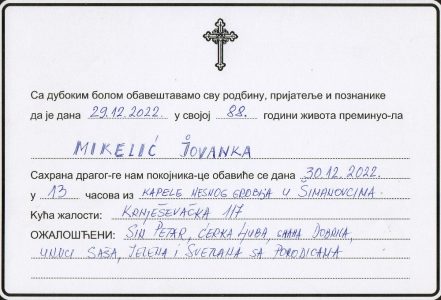 Са дубоким болом обавештавамо сву родбину, пријатеље и познанике
да је дана 29.12.2022. у својој 88. години живота преминуо-ла
MIKELIĆ JOVANKA
Сахрана драгог-ге нам покојника-це обавиће се дана 30.12.2022.
у 13 часова из KAPELE MESNOG GROBLJA U ŠIMANOVCIMA.
Кућа жалости: KRNJEŠEVAČKA 117
ОЖАЛОШЋЕНИ: SIN PETAR, ĆERKA LJUBA, SNAHA DOBRILA,
UNUCI SAŠA, JELENA I SVETLANA SA PORODICAMA